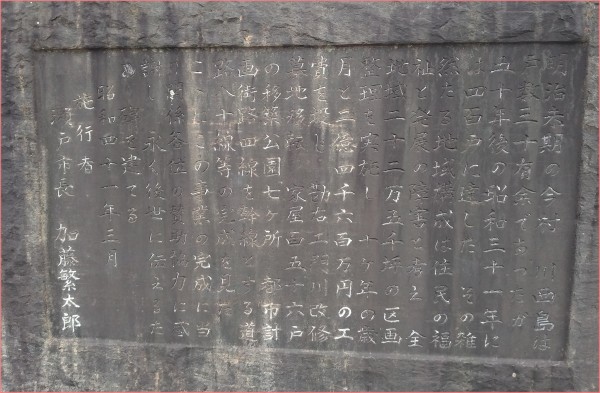 明治末期の今村 川西島は
戸数三十有余であつたが
五十年後の昭和三十一年に
は四百戸に達した その雑
然たる地域構成は住民の福
祉と発展の障害と考え 全
地域二十二万五千坪の区画
整理を実施し 十ヶ年の歳
月と三億四千六百万円の工
費を投じ 勘右エ門川改修
墓地移転 家屋百五十六戸
の移築公園七ヶ所 都市計
画街路四線を幹線とする道
路八十線等の完成を見た
ここにこの事業の完成に当
り 各位の賛助協力に感
謝し 永く後世に伝えるた
め 碑を建てる
昭和四十一年三月
施行者
瀬戸市長 加藤繁太郎